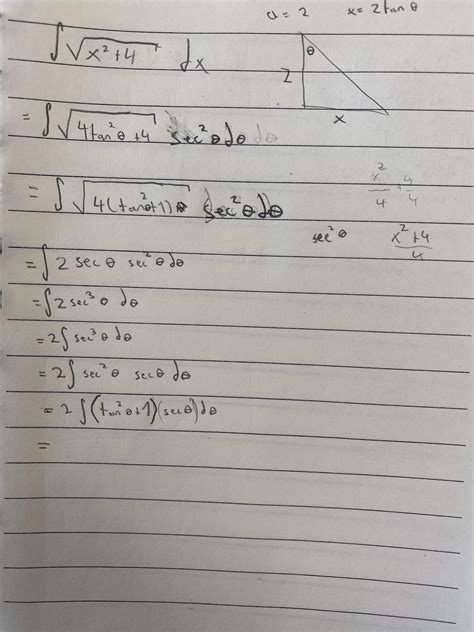 a = 2 x = 2 tan θ
∫ √(x² + 4) dx
θ
2
x
= ∫ √(4tan²θ + 4) sec²θ dθ dθ
= ∫ √(4(tan²θ+1)) sec²θ dθ
x²/4 + 4/4
sec²θ (x² + 4)/4
= ∫ 2 sec θ sec²θ dθ
= ∫ 2 sec³ θ dθ
= 2 ∫ sec³ θ dθ
= 2 ∫ sec² θ sec θ dθ
= 2 ∫ (tan²θ + 1)(sec θ) dθ
=